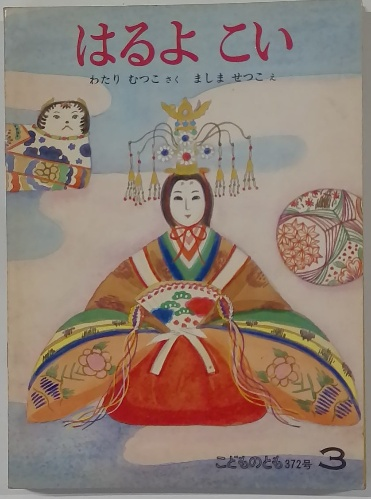 はるよ こい
わたり むつこ さく ましま せつこ え
こどものとも 372号 3